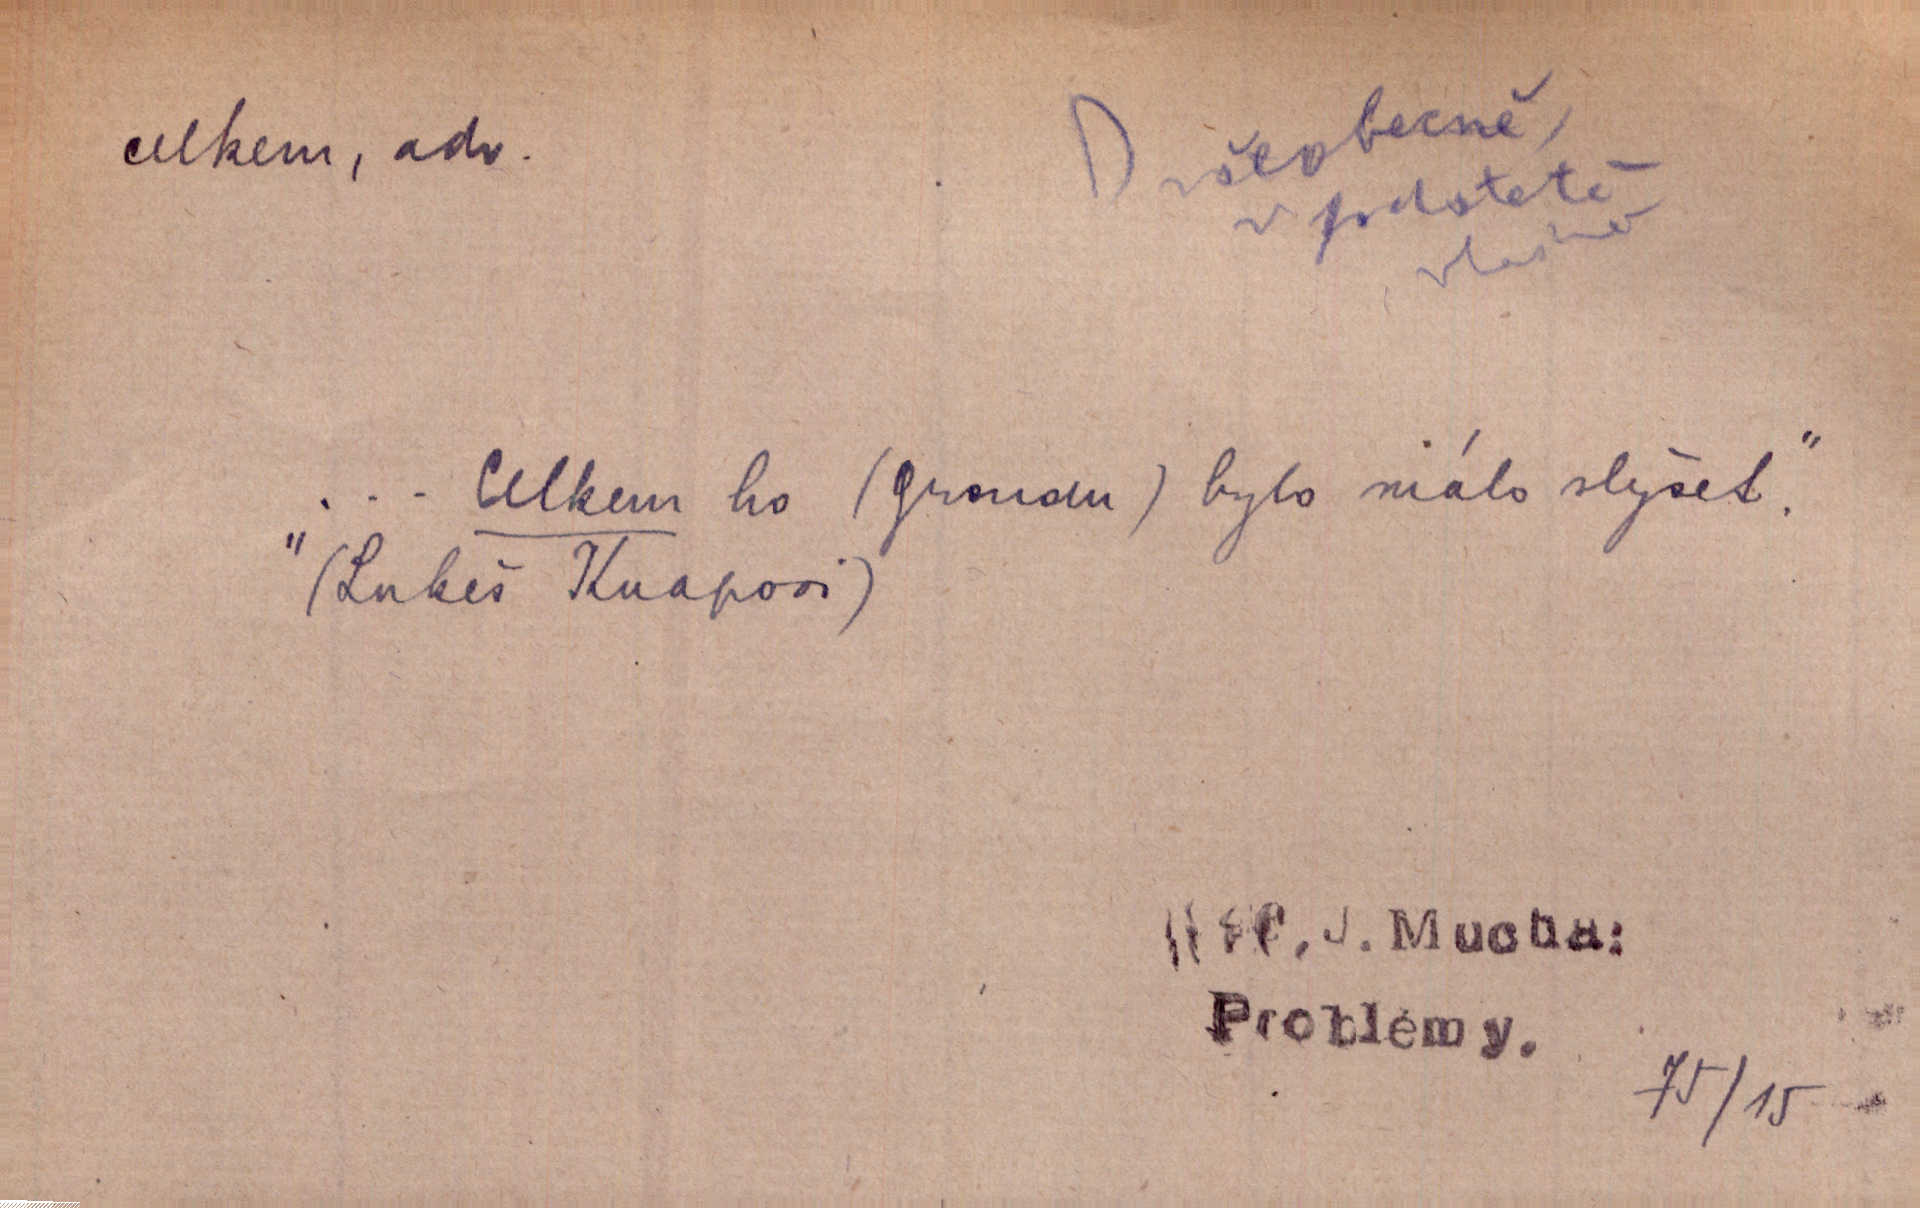 celkem, adv.
D všeobecně,
v podstatě
vlastně
... Celkem ho (Grandu) bylo málo slyšet."
"(Lukeš Knapovi)
J. Mucha:
Problémy.
75/15